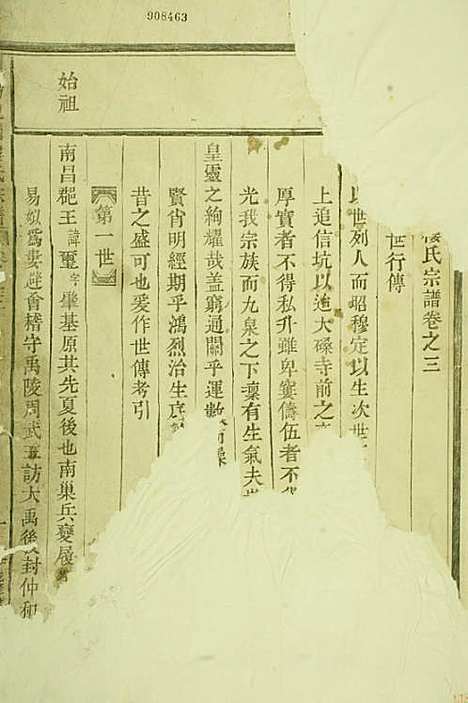 908463
氏宗譜卷之三
世行傳
以世列人而昭穆定以生次世
上追信坑以迄大磉寺前之
厚實者不得私升雖卑寠儔伍者不
光我宗族而九泉之下凜有生氣夫
皇靈之絢耀哉蓋窮通關乎運數
賢肖明經期乎鴻烈治生
昔之盛可也爰作世傳考引
第一世
始祖
南昌郡王諱璽字肇基原其先夏後也南巢兵變履
易姒爲婁避會稽守禹陵周武王訪大禹後封仲